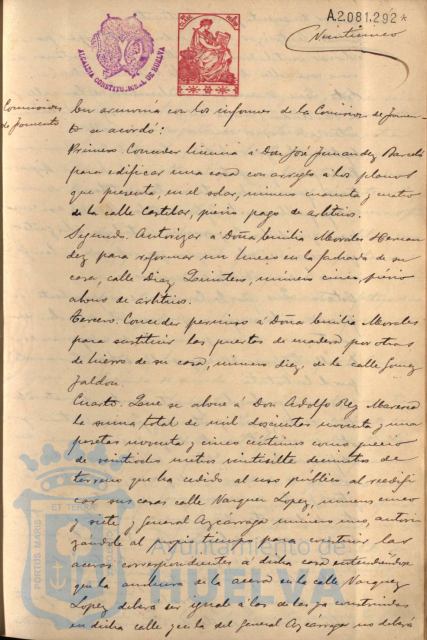 A.2.081.292*
Veinticinco
ALCALDIA CONSTITUCIONAL DE HUELVA
Comisiones
de fomento
En armonía con los informes de la Comision de fomen-
to se acordó:
Primero. Conceder licencia á Don José Fernandez Barceló
para edificar una casa con arreglo á los planos
que presenta, en el solar, número cuarenta y cuatro
de la calle Castelar, previo pago de arbitrios.
Segundo. Autorizar á Doña Emilia Morales Hernan
dez para reformar un hueco en la fachada de su
casa, calle Diaz Quintero, número cinco, previo
abono de arbitrios.
Tercero. Conceder permiso á Doña Emilia Morales
para sustituir las puertas de madera por otras
de hierro de su casa, número diez, de la calle Gomez
Jaldon.
Cuarto. Que se abone á Don Adolfo Rey
la suma total de mil doscientas noventa y una
pesetas noventa y cinco céntimos como precio
de veintidos metros veintisiete decimetros de
terreno que ha cedido al uso público al reedifi
car sus casas calle Vazquez Lopez, números cinco
y siete y General Azcárraga número uno, autori
zándole al propio tiempo para construir las
aceras correspondientes á dicha casa entendiéndose
que la anchura de la acera en la calle Vazquez
Lopez deberá ser igual á las de las ya construidas
en dicha calle y en la del General Azcárraga no deberá
ET TERRA
PORTUS MARIS
Ayuntamiento de
HUELVA